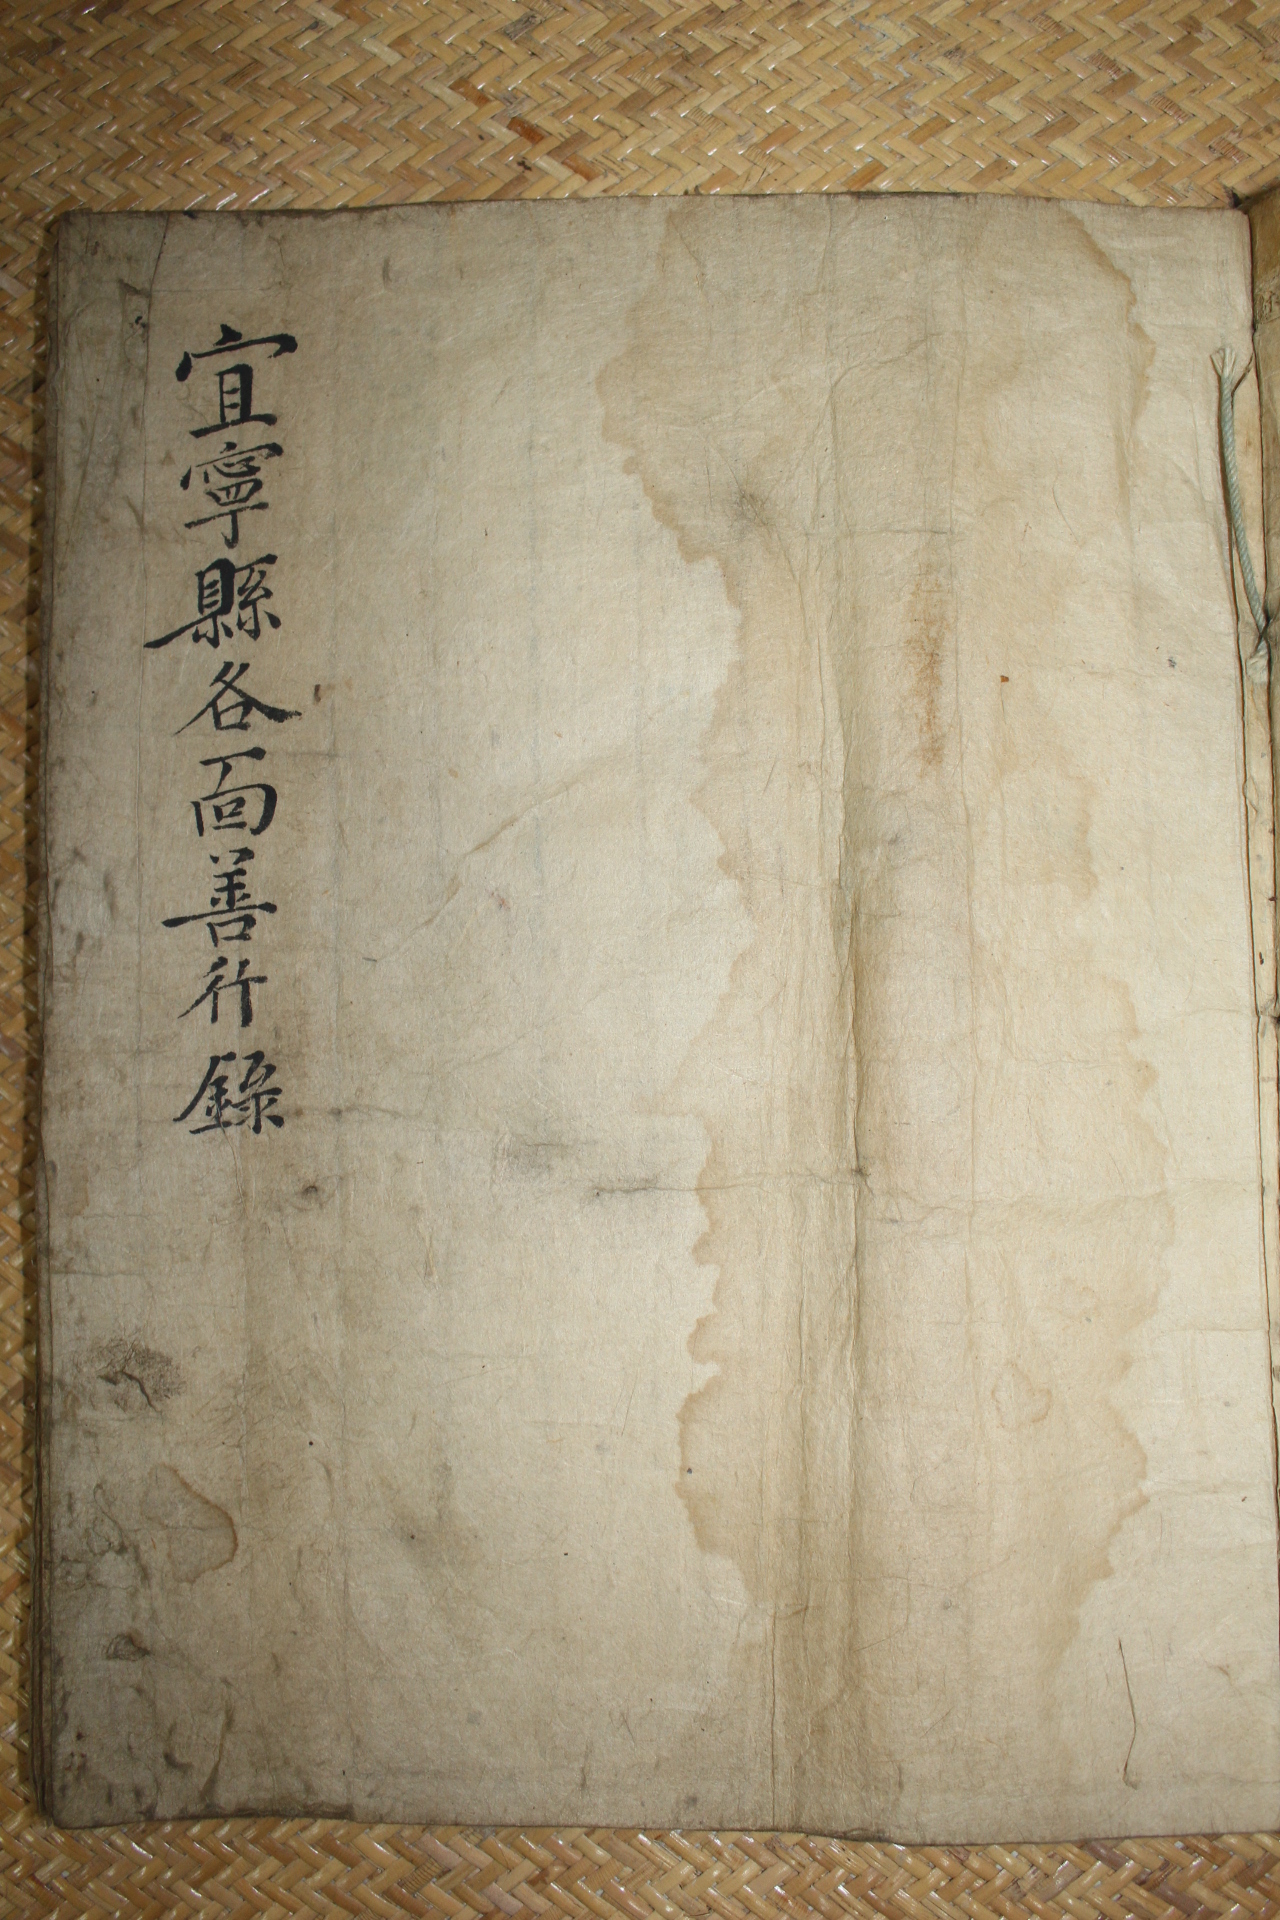 宜寧縣各面善行錄